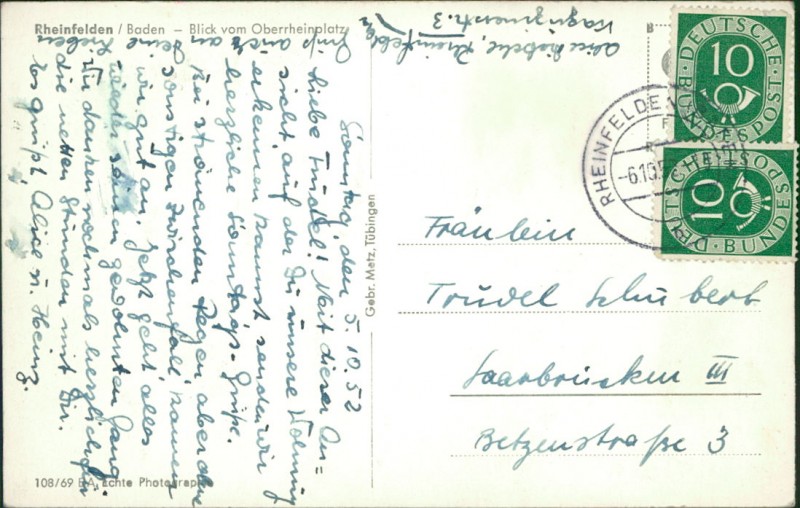 Rheinfelden / Baden - Blick vom Oberrheinplatz
Sonntag, den 5.10.52
Liebe Trudel! Mit dieser An=
sicht, auf der Du unsere Wohnung
erkennen kannst, senden wir
herzliche Sonntags-Grüße.
Bei strömendem Regen, aber ohne
sonstigen Zwischenfall, kamen
wir gut an. Jetzt geht alles
wieder seinen gewohnten Gang.
Wir danken nochmals herzlich für
die netten Stunden mit Dir.
Es grüßt Alice u. Heinz.
Gruß auch an Deine Lieben
Rheinfelden
3
Gebr. Metz, Tübingen
108/69 BA Echte Photographie
DEUTSCHE BUNDESPOST
10
DEUTSCHE BUNDESPOST
10
RHEINFELDEN
-6.10.5
Fräulein
Trudel Schubert
Saarbrücken III
Betzenstraße 3